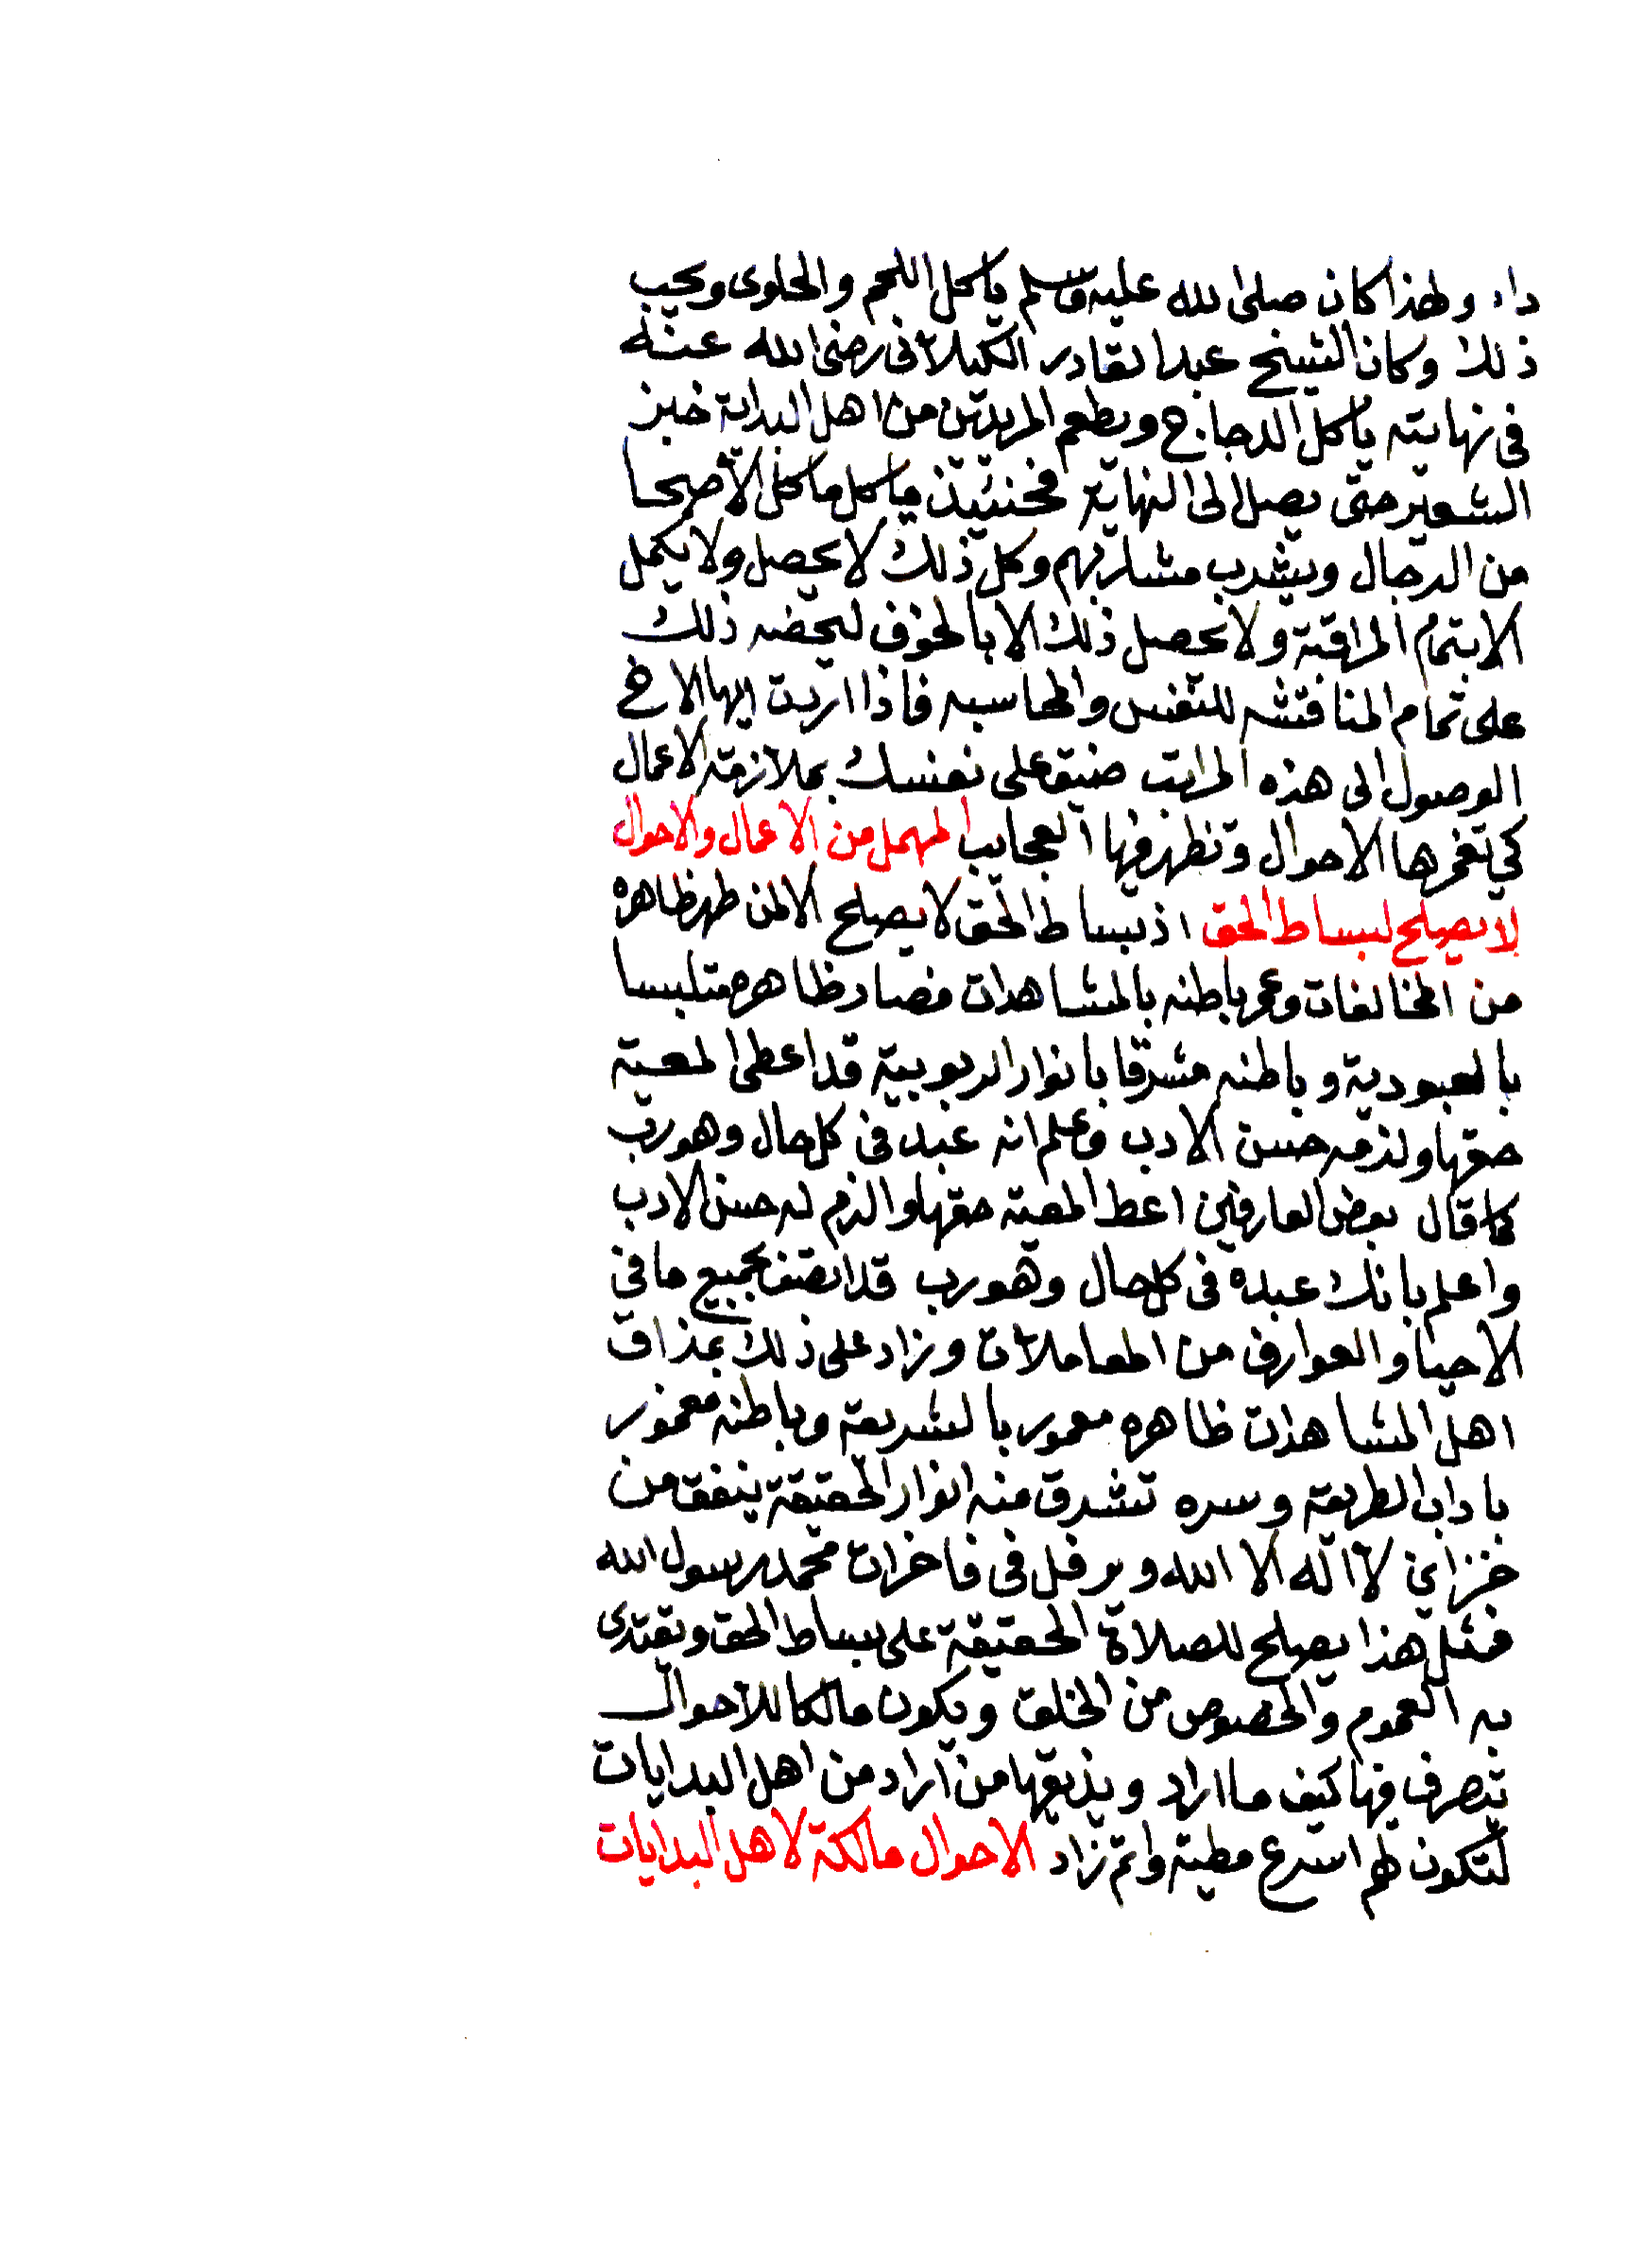 داء ولهذا كان صلى الله عليه وسلم ياكل اللحم والحلوى ويحب
ذلك وكان الشيخ عبد القادر الكيلاني رضى الله عنه
فى نهايته ياكل الدجاج ويطعم المريدين من اهل البداية خبز
الشعير حتى يصل الى النهاية فحينئذ ياكل ماكل الاصحا
من الرجال ويشرب مشاربهم وكل ذلك لا يحصل ولا يكمل
الا بتمام المراقبة ولا يحصل ذلك الا بالخوف ليحضه ذلك
على تمام المناقشه للنفس والمحاسبه فاذا اردت ايها الاخ
الوصول الى هذه المراتب ضيق على نفسك بملازمة الاعمال
كي تغمرها الاحوال وتظهر فيها العجايب المهمل من الاعمال والاحوال
لا يصلح لبساط الحق اذ بساط الحق لا يصلح الا لمن طهر ظاهره
من المخالفات وعمر باطنه بالمشاهدات فصار ظاهره متلبسا
بالعبودية وباطنه مشرقا بانوار الربوبية قد اعطى المعية
حقها ولزمه حسن الادب وعلم انه عبد فى كل حال وهو رب
كما قال بعض العارفين اعط المعية حقها والزم له حسن الادب
واعلم بانك عبده فى كل حال وهو رب قد اتصف بجميع ما في
الاحيا والعوارف من المعاملات وزاد على ذلك بمذاق
اهل المشاهدات ظاهره معمور بالشريعة وباطنه معمور
باداب الطريقة وسره تشرق منه انوار الحقيقة ينفق من
خزاين لا اله الا الله ويرفل فى فاخرات محمد رسول الله
فمثل هذا يصلح للصلاة الحقيقة على بساط الحق ويقتدى
به العموم والخصوص من الخلق ويكون مالكا للاحوال
يتصرف فيها كيف ما اراد ويذيقها من اراد من اهل البدايات
لتكون لهم اسرع مطية واتم زاد الاحوال مالكة لاهل البدايات